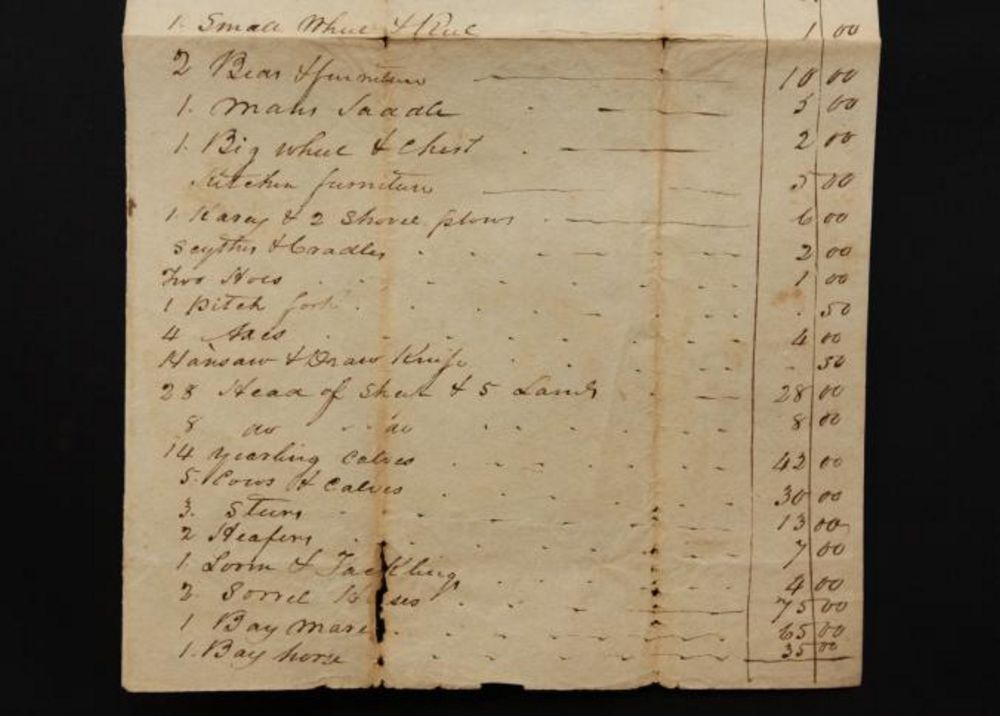 1. Small Wheel & Reel 1 00
2 Beds & furniture 10 00
1. Mans Saddle 5 00
1. Big wheel & Chest 2 00
Kitchen furniture 5 00
1 & 2 Shovel plows 6 00
Scythes & Cradles 2 00
Two Hoes 1 00
1 Pitch fork 50
4 Axes 4 00
Hansaw & Draw Knife 50
28 Head of Sheep & 5 Lambs 28 00
8 do do 8 00
14 yearling Calves 42 00
5. Cows & Calves 30 00
3. Steers 13 00
2 Heafers 7 00
1. Loom & Tackling 4 00
2. Sorrel Horses 75 00
1 Bay Mare 65 00
1. Bay horse 35 00